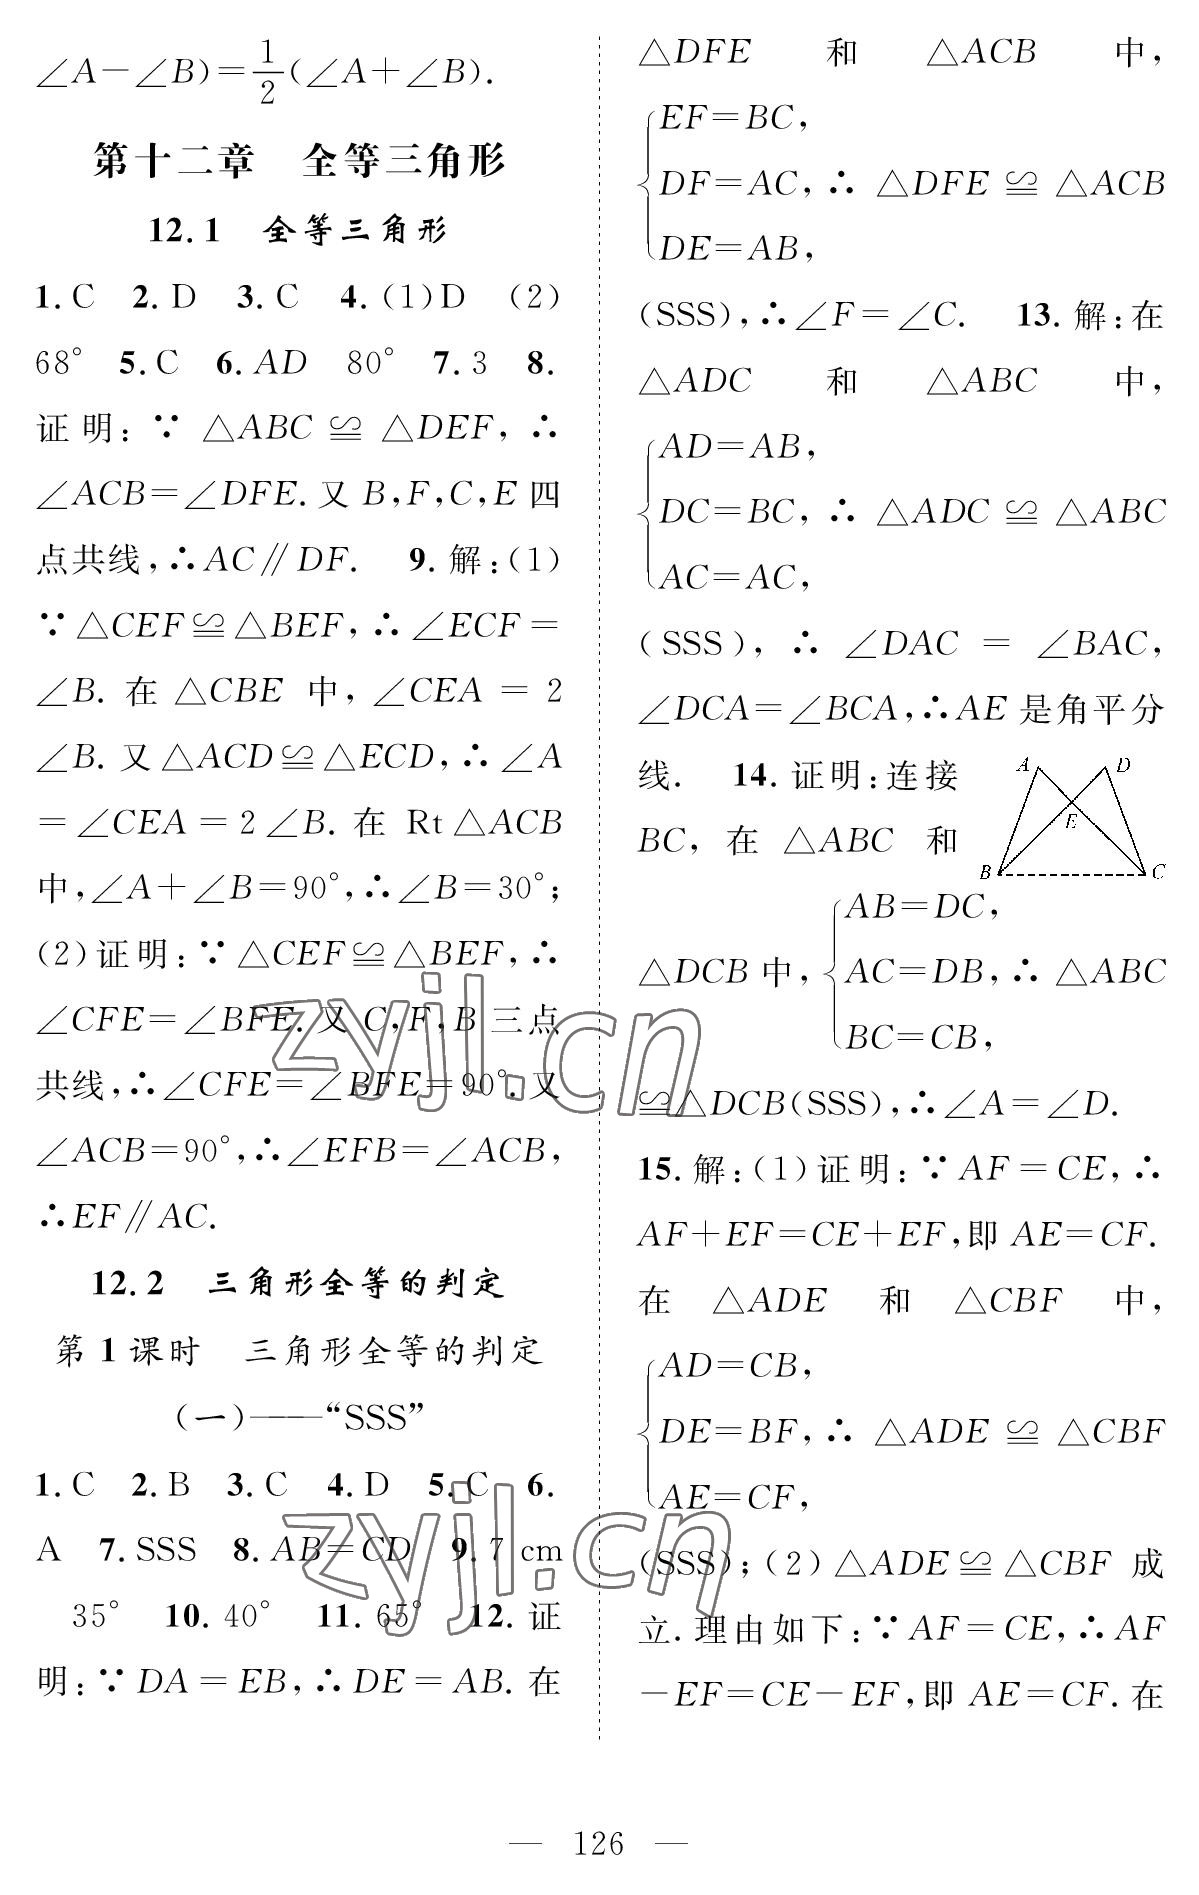 ∠A－∠B)＝1/2(∠A＋∠B).
第十二章　全等三角形
12.1　全等三角形
1.C　2.D　3.C　4.(1)D　(2)
68°　5.C　6.AD　80°　7.3　8.
证明:∵△ABC≌△DEF,∴
∠ACB＝∠DFE.又B,F,C,E四
点共线,∴AC∥DF.　9.解:(1)
∵△CEF≌△BEF,∴∠ECF＝
∠B.在△CBE中,∠CEA＝2
∠B.又△ACD≌△ECD,∴∠A
＝∠CEA＝2∠B.在Rt△ACB
中,∠A＋∠B＝90°,∴∠B＝30°;
(2)证明:∵△CEF≌△BEF,∴
∠CFE＝∠BFE.又C,F,B三点
共线,∴∠CFE＝∠BFE＝90°.又
∠ACB＝90°,∴∠EFB＝∠ACB,
∴EF∥AC.
12.2　三角形全等的判定
第1课时　三角形全等的判定
(一)——“SSS”
1.C　2.B　3.C　4.D　5.C　6.
A　7.SSS　8.AB＝CD　9.7 cm
35°　10.40°　11.65°　12.证
明:∵DA＝EB,∴DE＝AB.在
△DFE和△ACB中,
EF＝BC,
DF＝AC,∴△DFE≌△ACB
DE＝AB,
(SSS),∴∠F＝∠C.　13.解:在
△ADC和△ABC中,
AD＝AB,
DC＝BC,∴△ADC≌△ABC
AC＝AC,
(SSS),∴∠DAC＝∠BAC,
∠DCA＝∠BCA,∴AE是角平分
线.　14.证明:连接
BC,在△ABC和
A D
E
B C
AB＝DC,
△DCB中,AC＝DB,∴△ABC
BC＝CB,
≌△DCB(SSS),∴∠A＝∠D.
15.解:(1)证明:∵AF＝CE,∴
AF＋EF＝CE＋EF,即AE＝CF.
在△ADE和△CBF中,
AD＝CB,
DE＝BF,∴△ADE≌△CBF
AE＝CF,
(SSS);(2)△ADE≌△CBF成
立.理由如下:∵AF＝CE,∴AF
－EF＝CE－EF,即AE＝CF.在
— 126 —
zyjl.cn
zyjl.cn